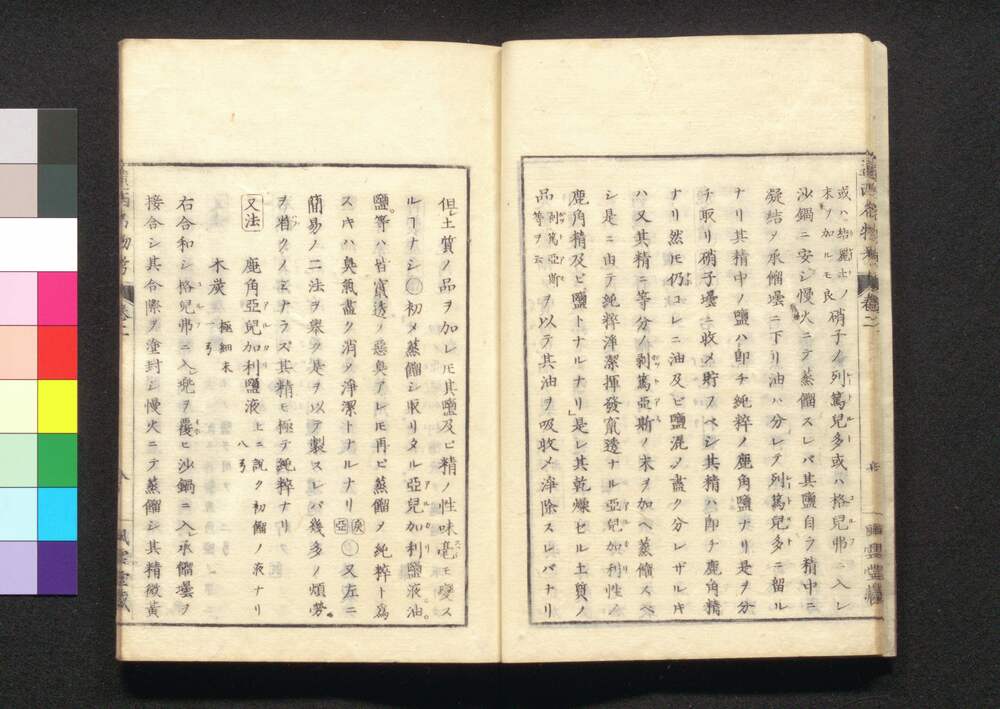 或ハ結麗土ノ硝子ノ列篤兒多或ハ格兒弗ニ入レ
末ヲ加ルモ良
沙鍋ニ安シ慢火ニテ蒸餾スレバ其鹽自ラ精中ニ
凝結ヲ承餾壜ニ下リ油ハ分レテ列篤兒多ニ留ル
ナリ其精中ノ鹽ハ即チ純粹ノ鹿角鹽ナリ是ヲ分
チ取リ硝子壜ニ收メ貯フベシ其精ハ即チ鹿角精
ナリ然モ仍コレニ油及ビ鹽混メ盡ク分レザルキ
ハ又其精ニ等分ノ剥篤亞斯ノ末ヲ加ヘ蒸餾スベ
シ是ニ由テ純粹淨潔揮發竄透ナル亞兒加利性ノ
鹿角精及ビ鹽トナルナリ」是レ其乾燥ビル土質ノ
品剥篤亞斯等ヲ云ヲ以テ其油ヲ吸收メ淨除スレバナリ
但土質ノ品ヲ加レ𪜈其鹽及ビ精ノ性味毫モ變ス
ルヿナシ〇初メ蒸餾シ取リタル亞兒加利鹽液油
鹽等ハ皆竄透ノ惡臭アレ𪜈再ビ蒸餾メ純粹ト爲
スキハ臭氣盡ク消メ淨潔トナルナリ亞〇又左ニ
簡易ノ二法ヲ擧ク是ヲ以テ製スレバ幾多ノ煩勞
ヲ省クノミナラズ其精モ極テ純粹ナリ
又法 鹿角亞兒加利鹽液 上ニ説ク初餾ノ液ナリ 八ヶ
木炭 極細末 一ヶ
右合和シ格兒弗ニ入兜ヲ覆ヒ沙鍋ニ入レ承餾壜ヲ
接合シ其合際ヲ塗封シ慢火ニテ蒸餾シ其精微黄